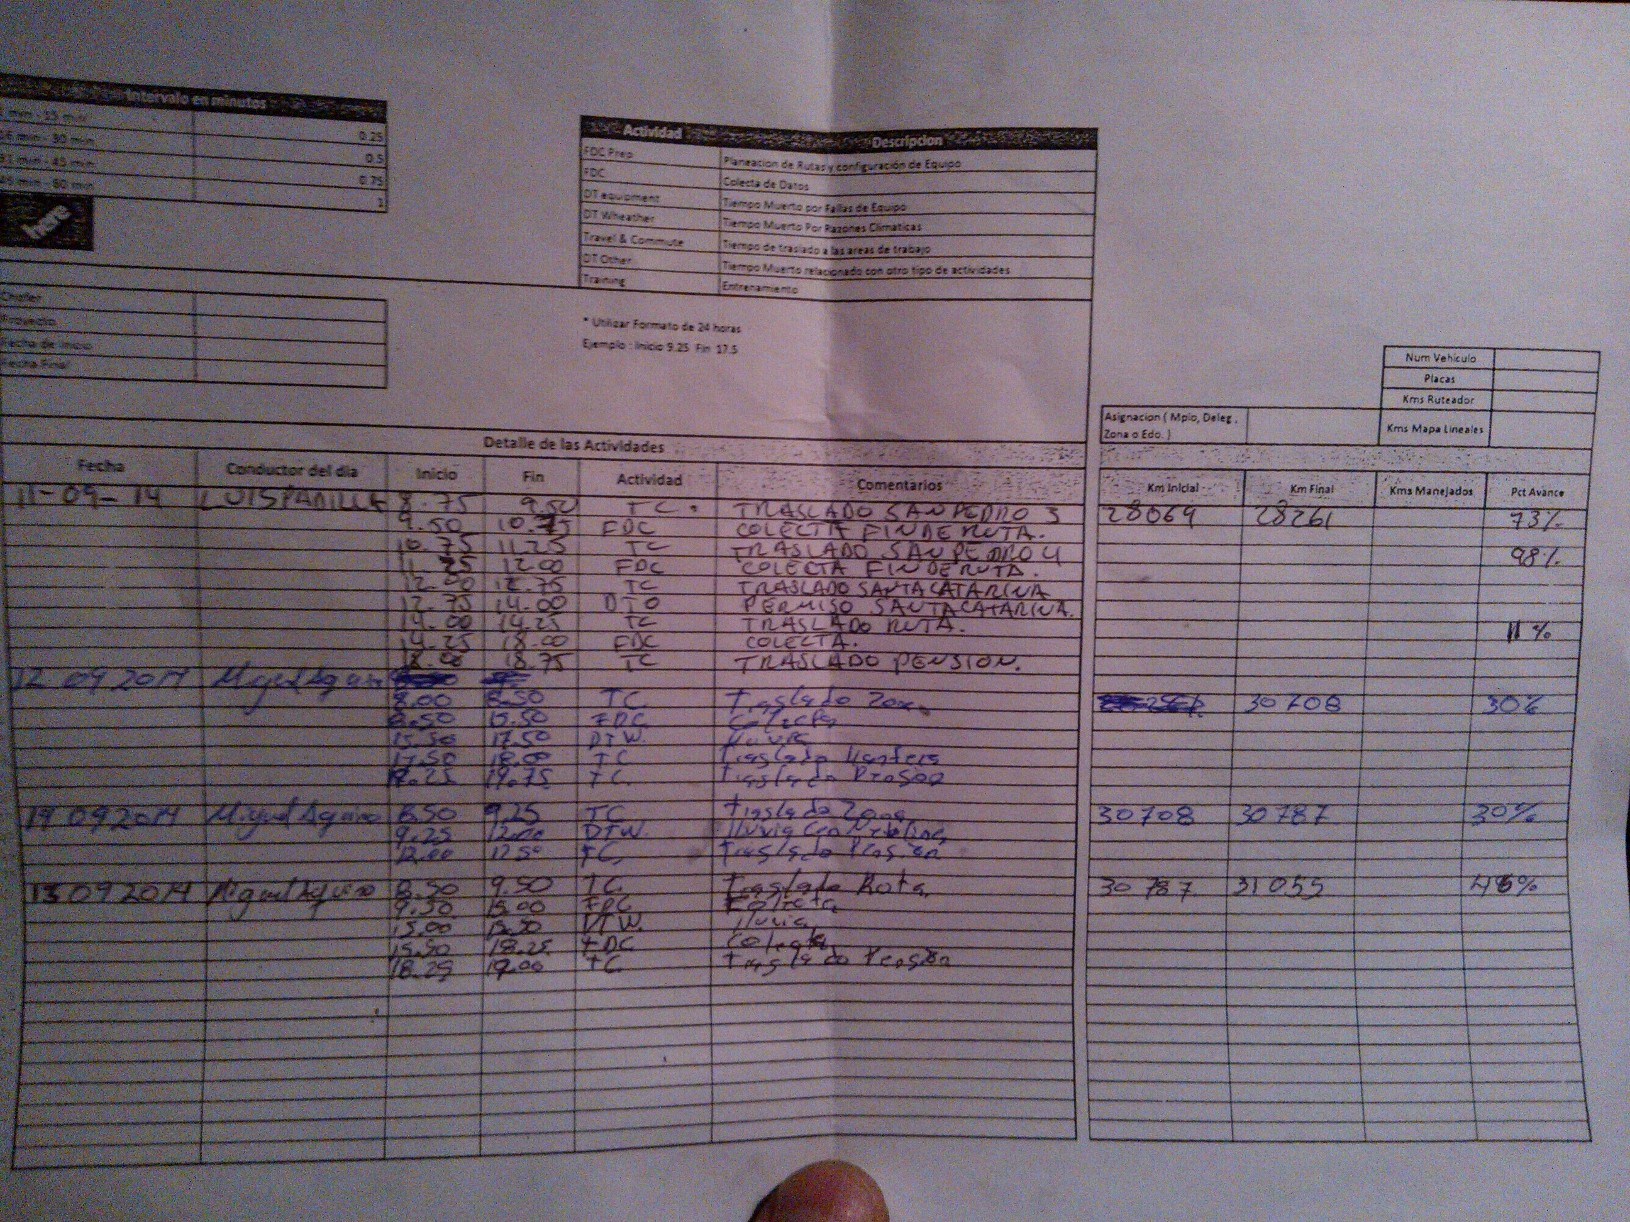 Intervalo en minutos
min - 15 min 0.25
16 min - 30 min 0.5
31 min - 45 min 0.75
45 min - 60 min 1
here
Actividad Descripcion
FDC Prep Planeacion de Rutas y configuración de Equipo
FDC Colecta de Datos
DT equipment Tiempo Muerto por Fallas de Equipo
DT Wheather Tiempo Muerto Por Razones Climaticas
Travel & Commute Tiempo de traslado a las areas de trabajo
DT Other Tiempo Muerto relacionado con otro tipo de actividades
Training Entrenamiento
Chofer
Proyecto
Fecha de Inicio
Fecha Final
* Utilizar Formato de 24 horas
Ejemplo : Inicio 9.25 Fin 17.5
Num Vehiculo
Placas
Kms Ruteador
Kms Mapa Lineales
Asignacion ( Mpio, Deleg,
Zona o Edo. )
Detalle de las Actividades
Fecha Conductor del dia Inicio Fin Actividad Comentarios Km Inicial Km Final Kms Manejados Pct Avance
11-09-14 LUIS PADILLA 8.75 9.50 TC. TRASLADO SAN PEDRO 3 28069 28261 73%
9.50 10.75 FDC COLECTA FIN DE RUTA.
10.75 11.25 TC TRASLADO SAN PEDRO 4 98%
11.25 12.00 FDC COLECTA FIN DE RUTA.
12.00 12.75 TC TRASLADO SANTA CATARINA
12.75 14.00 DTO PERMISO SANTA CATARINA.
14.00 14.25 TC TRASLADO RUTA.
14.25 18.00 FDC COLECTA. 11%
18.00 18.75 TC TRASLADO PENSION.
12 09 2014 Miguel Aquino
8.00 8.50 TC Traslado Zona 30708 30%
8.50 15.50 FDC Colecta
15.50 17.50 DTW. lluvia
17.50 18.00 TC Traslado
19.25 19.75 TC. Traslado Pension
14 09 2014 Miguel Aquino 8.50 9.25 TC Traslado Zona 30708 30787 30%
9.25 12.00 DTW. lluvia con Neblina
12.00 12.50 TC, Traslado Pension
15 09 2014 Miguel Aquino 8.50 9.50 TC. Traslado Ruta, 30787 31055 46%
9.50 15.00 FDC Colecta
15.00 15.50 DTW. lluvia
15.50 18.25 FDC Colecta
18.25 19.00 TC Traslado Pension